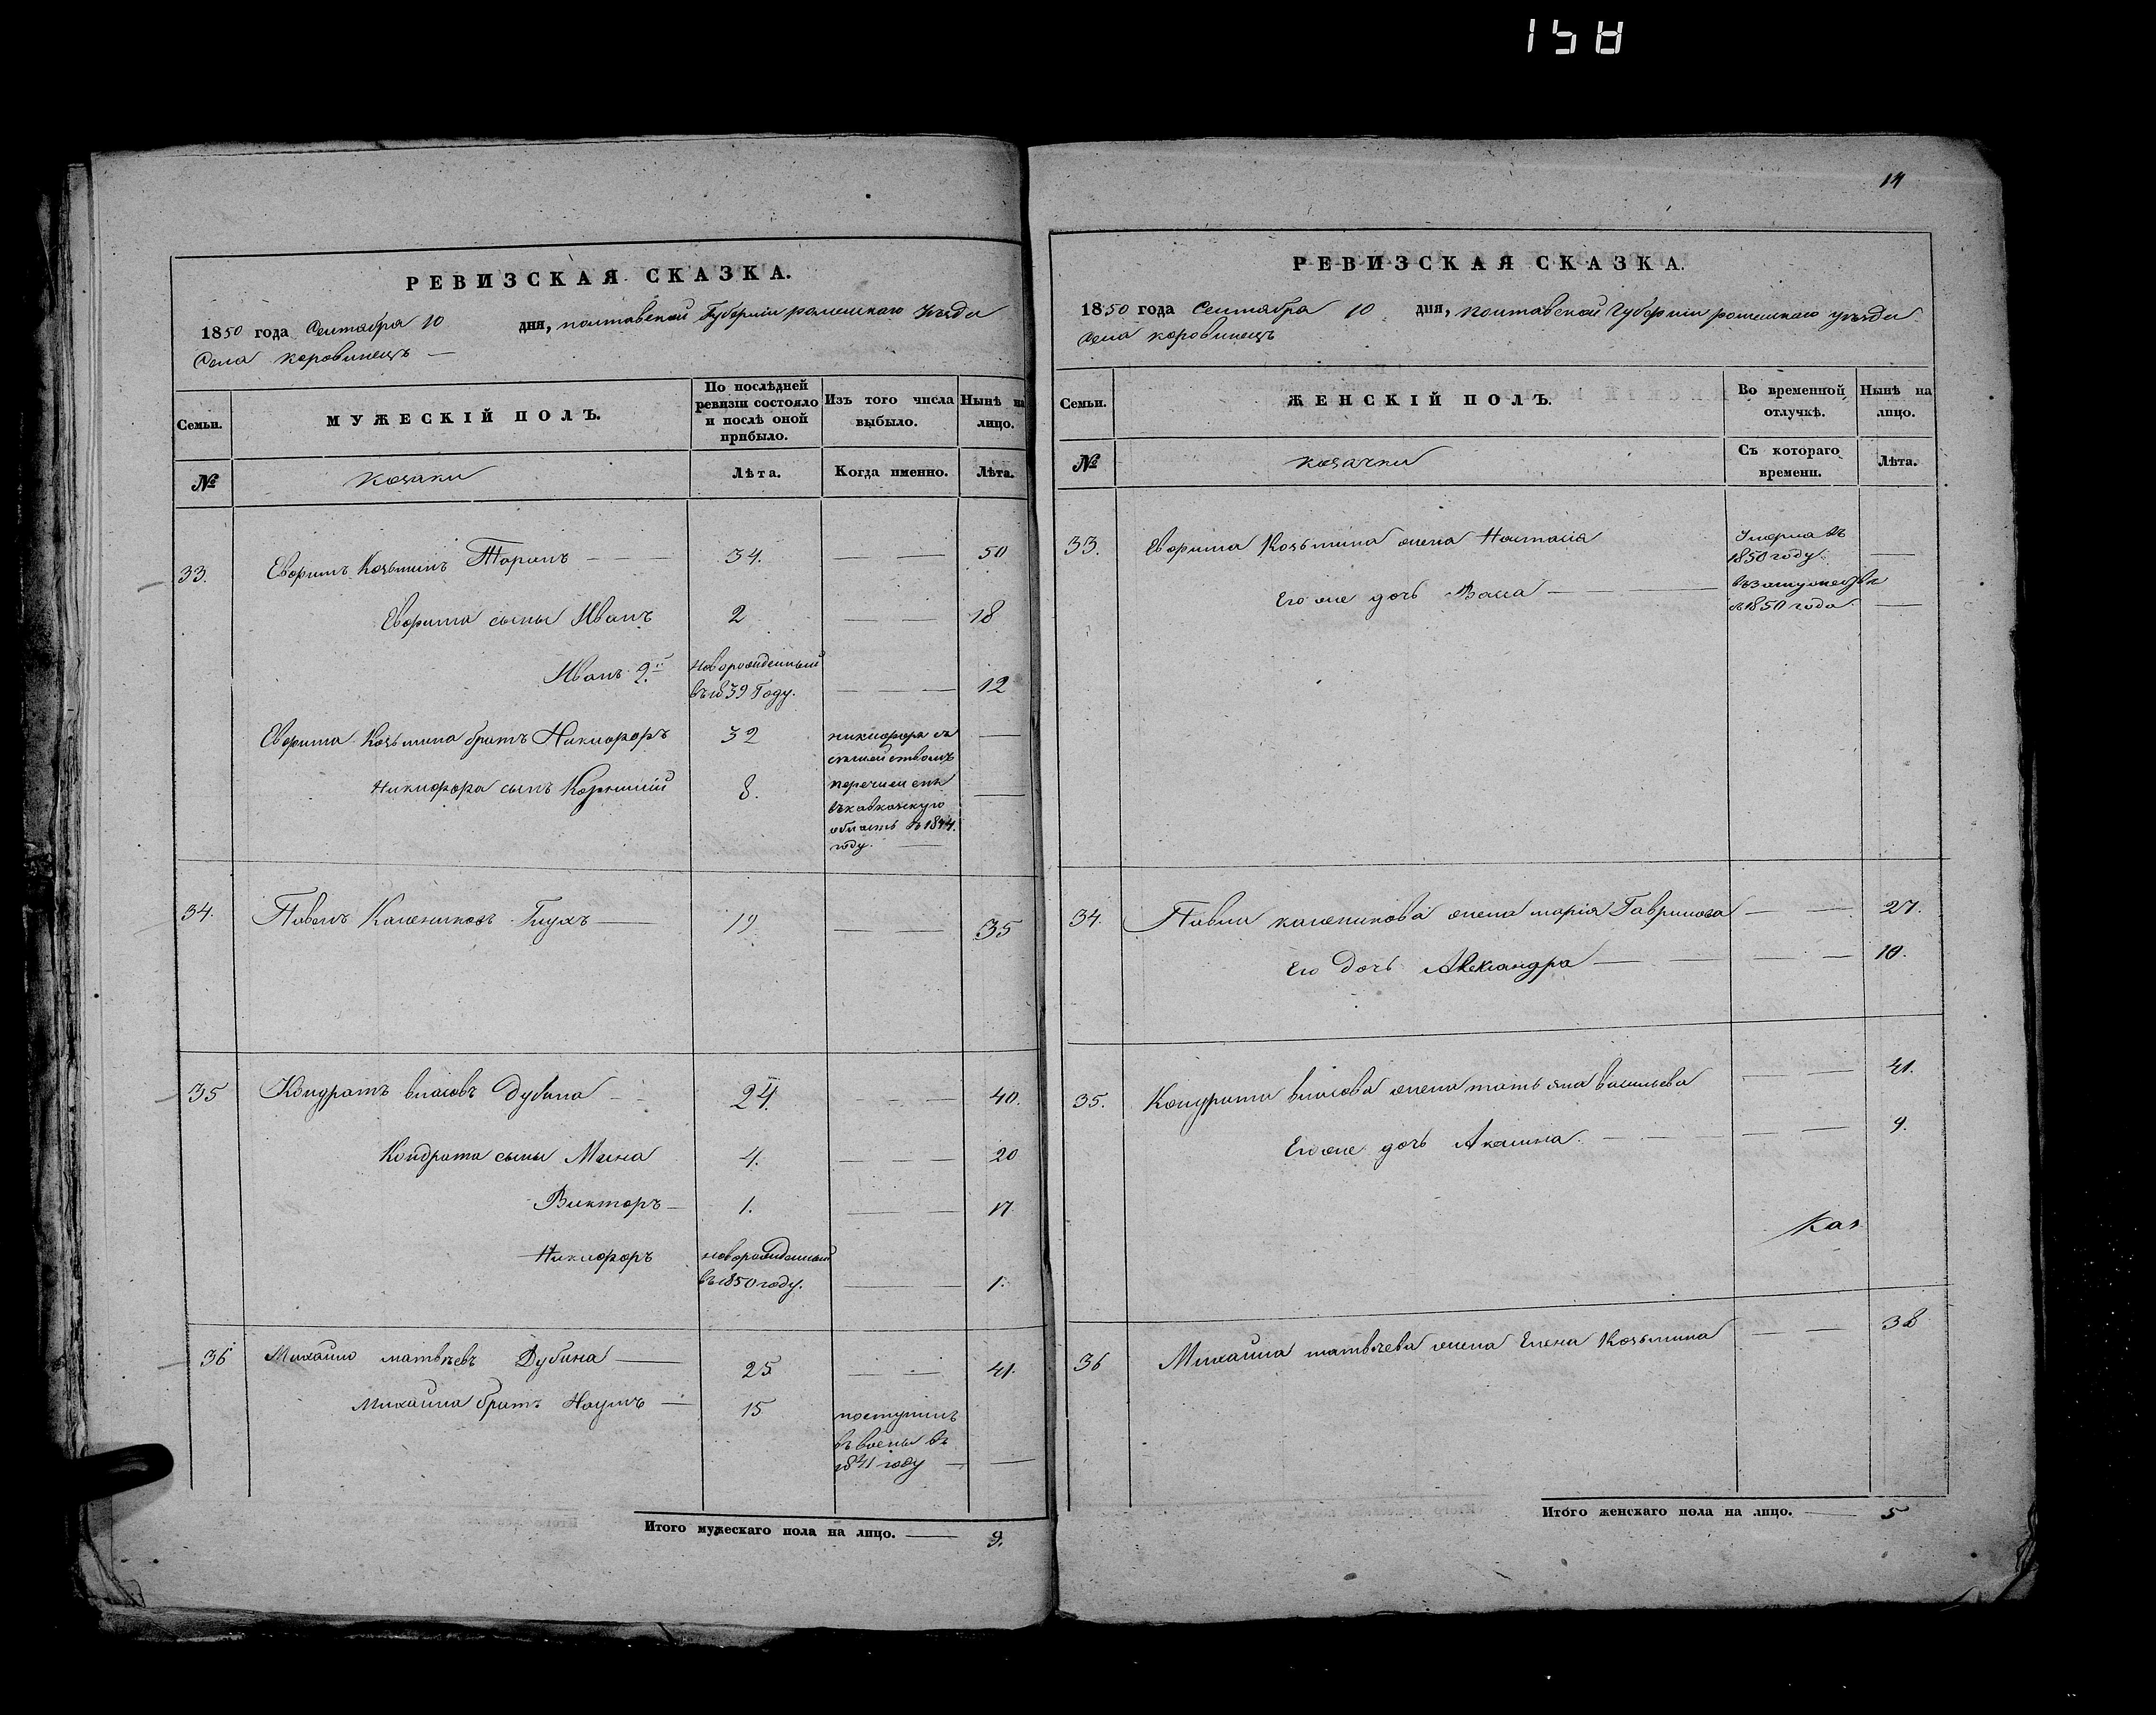 14
РЕВИЗСКАЯ СКАЗКА.
1850 года Сентября 10 дня, полтавской Губерніи роменскаго уѣзда
Села коровинецъ —
Семьи.
МУЖЕСКІЙ ПОЛЪ.
По послѣдней ревизіи состояло и послѣ оной прибыло.
Изъ того числа выбыло.
Нынѣ на лицо.
№
козаки
Лѣта.
Когда именно.
Лѣта.
33. Ефримъ Козьминъ Таранъ — 34. — — 50
Ефрима сыны Иванъ 2 — — 18
Иванъ 2й новорожденный въ 1839 Году. — — 12
Ефрима Козьмина братъ Никифоръ 32 —
Никифора сынъ 8. —
никифоръ съ
семействомъ
перечисленъ
въ кавказкую
область в 1844.
году. —
34. Павелъ Калениковъ Глухъ — 19 — — 35
35 Кондратъ власовъ Дубина — 24. — — 40.
Кондрата сыны Мина 4. — — 20
Викторъ — 1. — — 17
Никифоръ новорожденный въ 1850 году. — — 1.
36 Михайло матвѣевъ Дубина — 25 — — 41.
Михайла братъ Наумъ — 15
поступилъ
въ
1841 году — —
Итого мужескаго пола на лицо. — 9.
РЕВИЗСКАЯ СКАЗКА.
1850 года Сентября 10 дня, полтавской Губерніи роменскаго уѣзда
села коровинецъ
Семьи.
ЖЕНСКІЙ ПОЛЪ.
Во временной отлучкѣ.
Нынѣ на лицо.
№
козачки
Съ котораго времени.
Лѣта.
33. Ефрима Козьмина жена Наталія Умерла въ 1850 году. —
Его же дочь — въ замужествѣ с 1850 года. —
34. Павла каленикова жена марія Гаврилова — — 27.
Его Дочь Александра — — 10.
35. Кондрата власова жена татьяна васильева — — 41.
Его же дочь Акилина. — — 9.
Каз
36 Михайла матвѣева жена Елена Козьмина — — 38
Итого женскаго пола на лицо. — 5